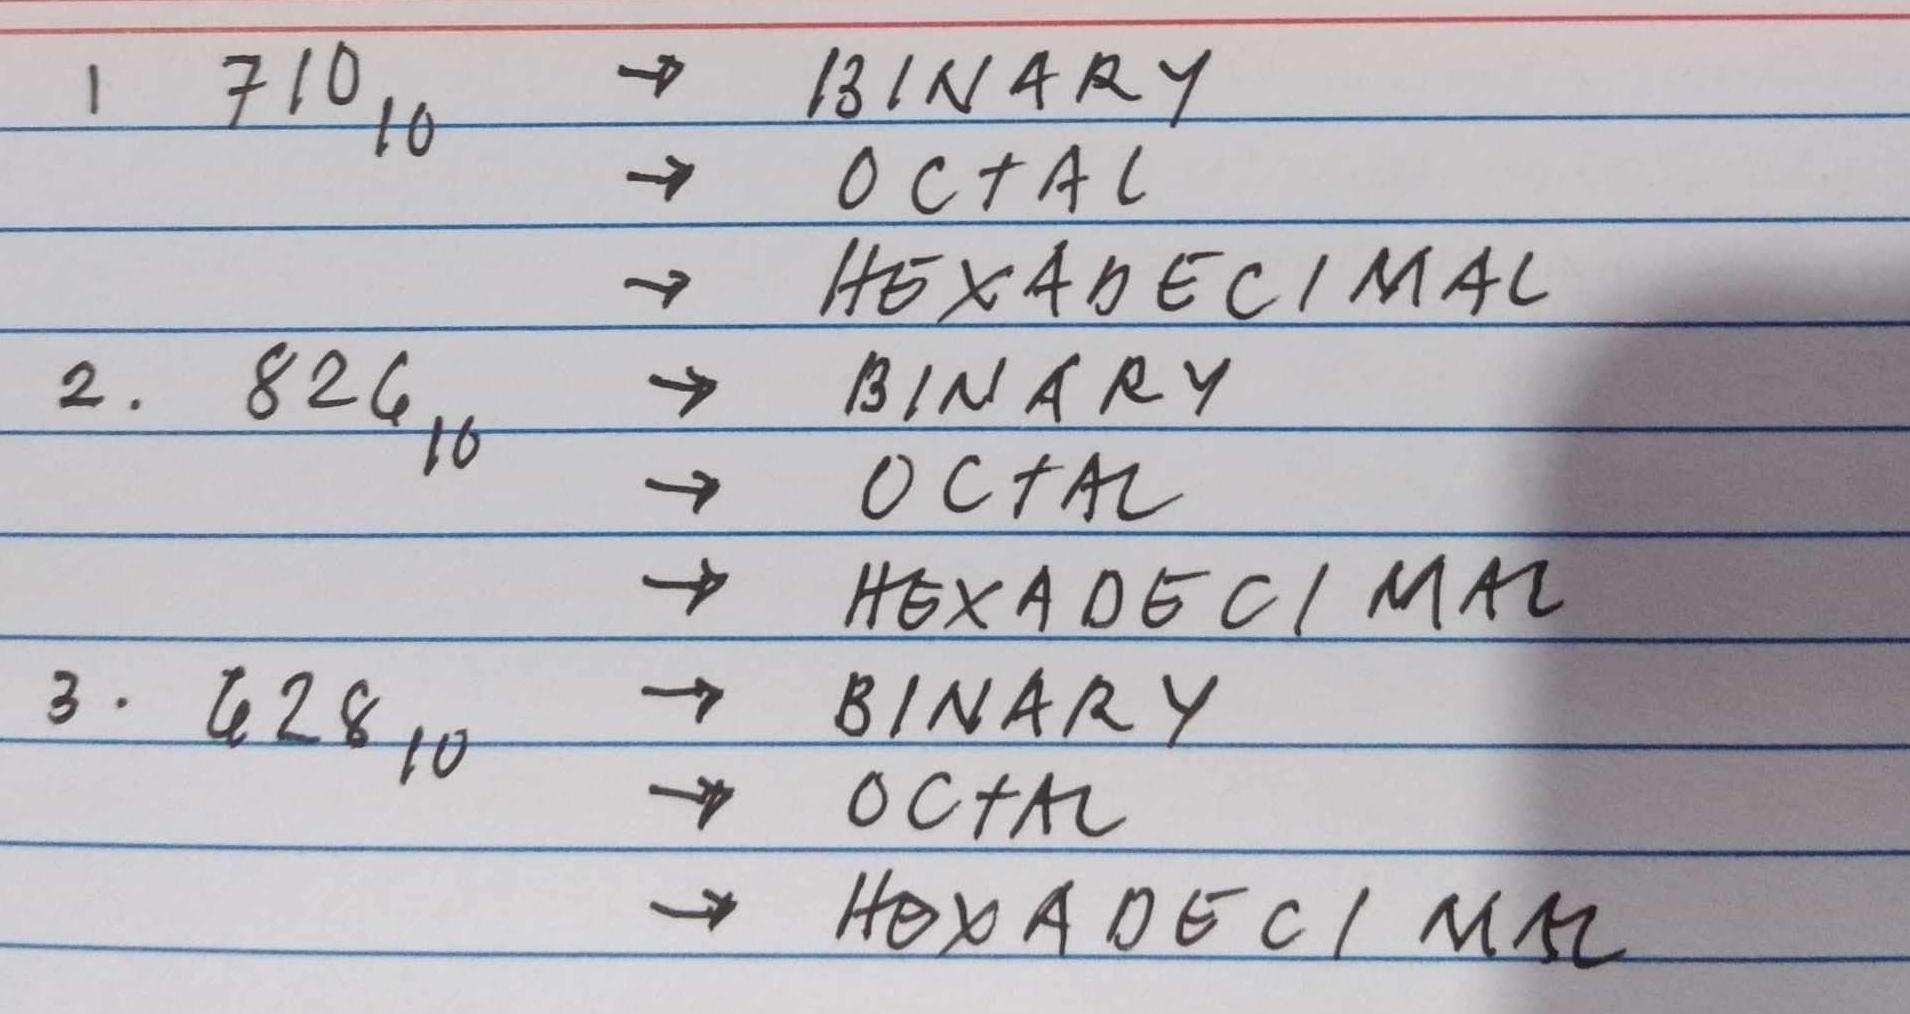 1 710₁₀ → BINARY
→ OCTAL
→ HEXADECIMAL
2. 826₁₀ → BINARY
→ OCTAL
→ HEXADECIMAL
3. 628₁₀ → BINARY
→ OCTAL
→ HEXADECIMAL